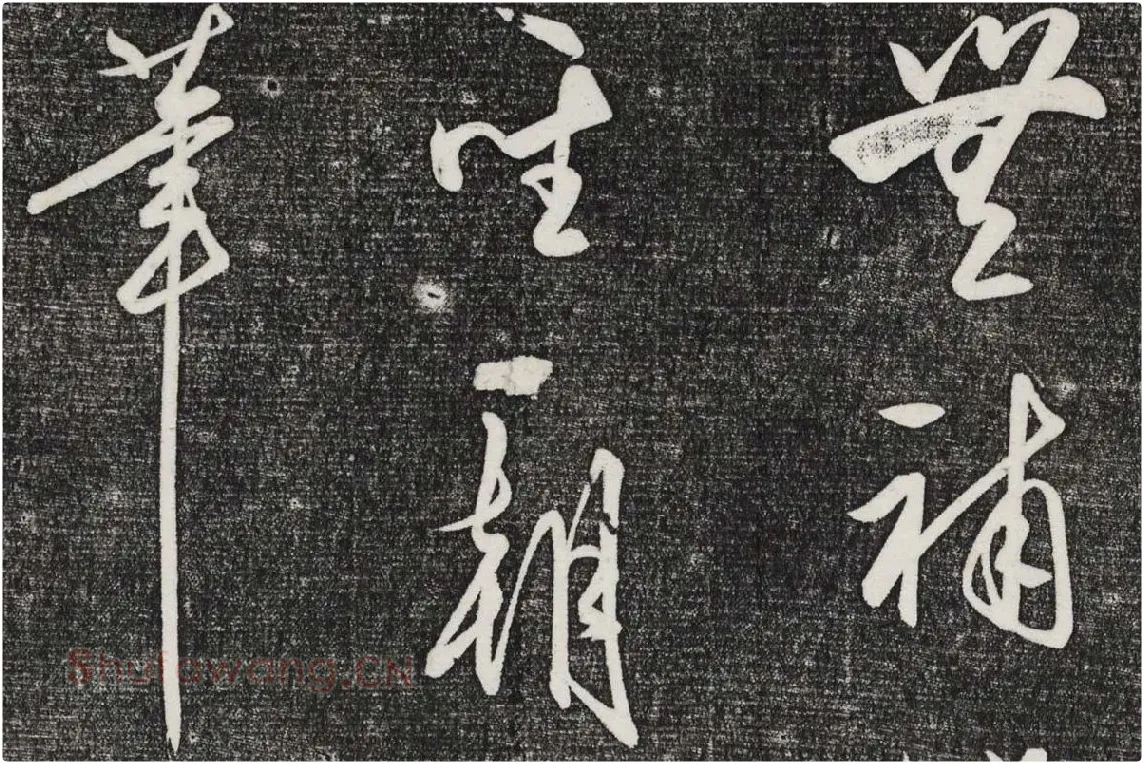 無補
朝
華
Shufawang.CN